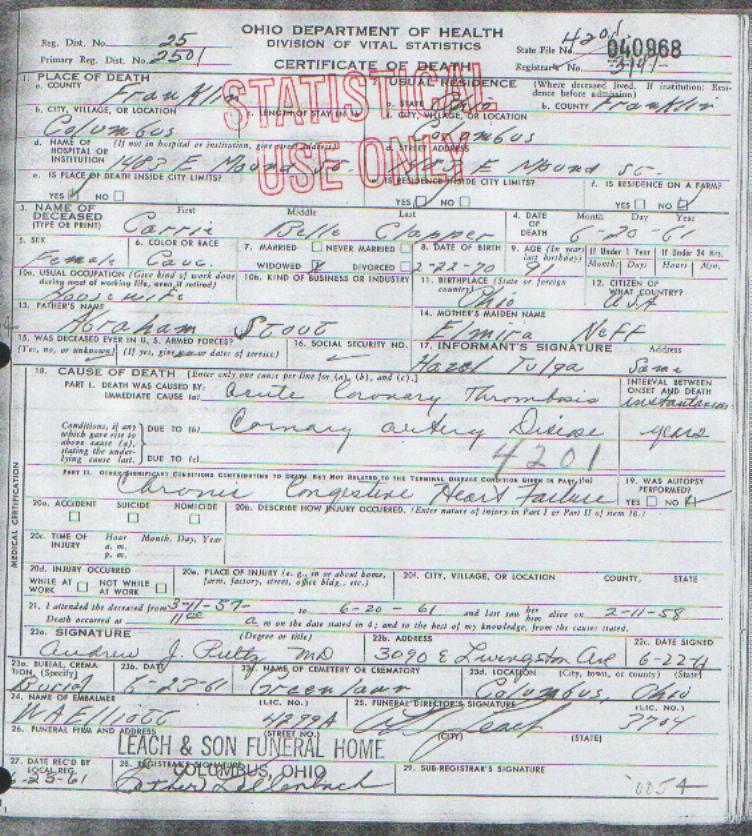 OHIO DEPARTMENT OF HEALTH
DIVISION OF VITAL STATISTICS
CERTIFICATE OF DEATH
Reg. Dist. No. 25
Primary Reg. Dist. No. 2501
State File No. 4201 040968
Registrar's No.
STATISTICAL
USE ONLY
1. PLACE OF DEATH
a. COUNTY Franklin
2. USUAL RESIDENCE (Where deceased lived. If institution: Residence before admission)
a. STATE Ohio b. COUNTY Franklin
b. CITY, VILLAGE, OR LOCATION Columbus
c. LENGTH OF STAY IN 1b
c. CITY, VILLAGE, OR LOCATION Columbus
d. NAME OF HOSPITAL OR INSTITUTION (If not in hospital or institution, give street address) 1483 E Mound St.
d. STREET ADDRESS 1483 E Mound St.
e. IS PLACE OF DEATH INSIDE CITY LIMITS?
YES ✓ NO
e. IS RESIDENCE INSIDE CITY LIMITS?
YES ✓ NO
f. IS RESIDENCE ON A FARM?
YES NO ✓
3. NAME OF DECEASED (TYPE OR PRINT)
First Middle Last
Carrie Belle Clapper
4. DATE OF DEATH Month Day Year
6-20-61
5. SEX Female
6. COLOR OR RACE Cauc.
7. MARRIED NEVER MARRIED
WIDOWED ✓ DIVORCED
8. DATE OF BIRTH 2-22-70
9. AGE (In years last birthday) 91
If Under 1 Year Months Days
If Under 24 Hrs. Hours Min.
10a. USUAL OCCUPATION (Give kind of work done during most of working life, even if retired) Housewife
10b. KIND OF BUSINESS OR INDUSTRY
11. BIRTHPLACE (State or foreign country) Ohio
12. CITIZEN OF WHAT COUNTRY? USA
13. FATHER'S NAME Abraham Stout
14. MOTHER'S MAIDEN NAME Elmira Neff
15. WAS DECEASED EVER IN U.S. ARMED FORCES?
(Yes, no, or unknown) (If yes, give war or dates of service)
16. SOCIAL SECURITY NO.
17. INFORMANT'S SIGNATURE Address
Hazel Tulga Same
18. CAUSE OF DEATH [Enter only one cause per line for (a), (b), and (c).]
PART I. DEATH WAS CAUSED BY:
IMMEDIATE CAUSE (a) Acute Coronary Thrombosis
INTERVAL BETWEEN ONSET AND DEATH
instantaneous
Conditions, if any which gave rise to above cause (a), stating the underlying cause last.
DUE TO (b) Coronary artery Disease years
DUE TO (c)
4201
PART II. OTHER SIGNIFICANT CONDITIONS CONTRIBUTING TO DEATH BUT NOT RELATED TO THE TERMINAL DISEASE CONDITION GIVEN IN PART I(a)
Chronic Congestive Heart Failure
19. WAS AUTOPSY PERFORMED?
YES NO ✓
MEDICAL CERTIFICATION
20a. ACCIDENT SUICIDE HOMICIDE
20b. DESCRIBE HOW INJURY OCCURRED. (Enter nature of injury in Part I or Part II of item 18.)
20c. TIME OF INJURY Hour a. m. p. m. Month, Day, Year
20d. INJURY OCCURRED
WHILE AT WORK NOT WHILE AT WORK
20e. PLACE OF INJURY (e. g., in or about home, farm, factory, street, office bldg., etc.)
20f. CITY, VILLAGE, OR LOCATION COUNTY, STATE
21. I attended the deceased from 3-11-57 to 6-20-61 and last saw her him alive on 2-11-58
Death occurred at 11 00 a m on the date stated in 4; and to the best of my knowledge, from the causes stated.
22a. SIGNATURE (Degree or title)
Andrew J. MD
22b. ADDRESS
3090 E Livingston Ave
22c. DATE SIGNED
6-22-61
23a. BURIAL, CREMATION, (Specify) Burial
23b. DATE 6-23-61
23c. NAME OF CEMETERY OR CREMATORY Greenlawn
23d. LOCATION (City, town, or county) (State)
Columbus, Ohio
24. NAME OF EMBALMER (LIC. NO.)
WA Elliott 4299A
25. FUNERAL DIRECTOR'S SIGNATURE (LIC. NO.)
Leach 3704
26. FUNERAL FIRM AND ADDRESS (STREET NO.) (CITY) (STATE)
LEACH & SON FUNERAL HOME
COLUMBUS, OHIO
27. DATE REC'D BY LOCAL REG. 6-25-61
28. REGISTRAR'S SIGNATURE
29. SUB-REGISTRAR'S SIGNATURE